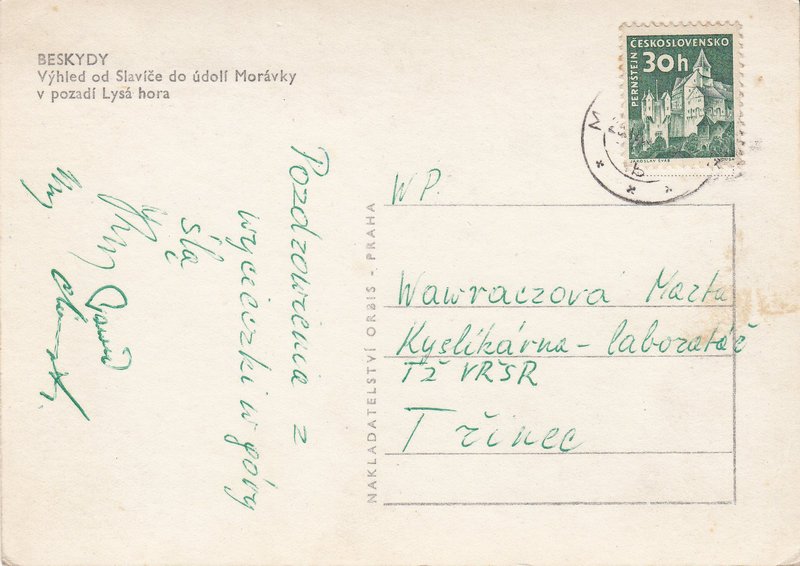 BESKYDY
Výhled od Slavíče do údolí Morávky
v pozadí Lysá hora
ČESKOSLOVENSKO
30h
PERNŠTEJN
JAROSLAV ŠVÁB
M
Pozdrowienia z
wycieczki w góry
śla
NAKLADATELSTVÍ ORBIS - PRAHA
WP.
Wawraczová Marta
Kyslikárna - laboratoř
TŽ VŘSR
Třinec